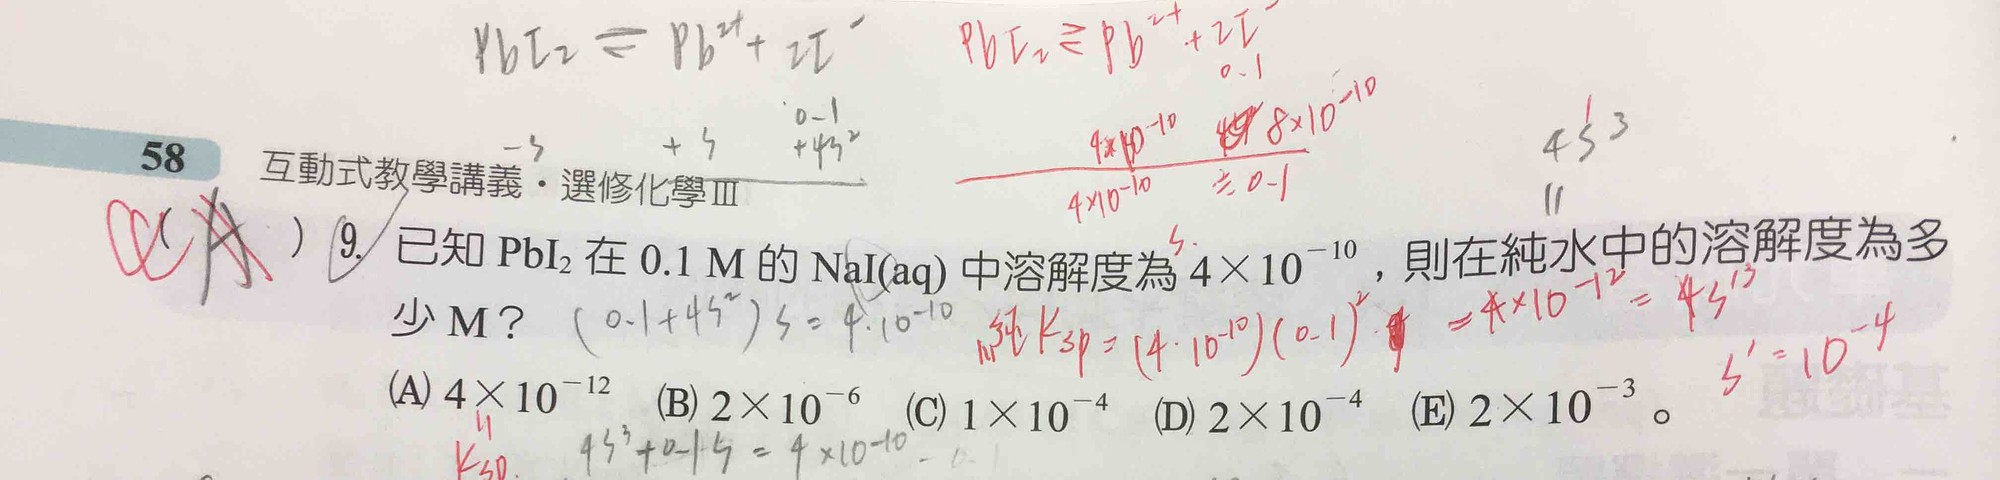 PbI₂ ⇌ Pb²⁺ + 2I⁻
PbI₂ ⇌ Pb²⁺ + 2I⁻
0.1
0.1
-s +s +4s²
4×10⁻¹⁰ 8×10⁻¹⁰
4×10⁻¹⁰ ≒ 0.1
4s'³
=
58 互動式教學講義・選修化學Ⅲ
C ( A ) 9. 已知 PbI₂ 在 0.1 M 的 NaI(aq) 中溶解度為 4×10⁻¹⁰,則在純水中的溶解度為多
s.
少 M? (0.1+4s²)s = 4·10⁻¹⁰ 純 Ksp = (4·10⁻¹⁰)(0.1)² = 4×10⁻¹² = 4s'³
s' = 10⁻⁴
(A) 4×10⁻¹² (B) 2×10⁻⁶ (C) 1×10⁻⁴ (D) 2×10⁻⁴ (E) 2×10⁻³。
=
Ksp. 4s³+0.1s = 4×10⁻¹⁰